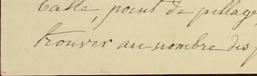 taste, point de pillage
trouver au nombre des